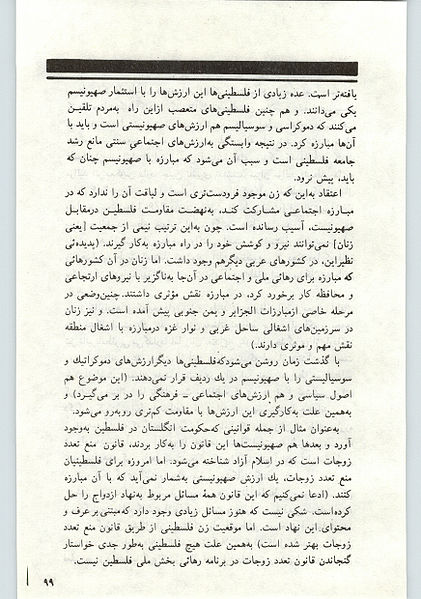 یافته‌تر است. عده زیادی از فلسطینی‌ها این ارزش‌ها را با استثمار صهیونیسم
یکی می‌دانند. و هم چنین فلسطینی‌های متعصب ازاین راه به‌مردم تلقین
می‌کنند که دموکراسی و سوسیالیسم هم ارزش‌های صهیونیستی است و باید با
آن‌ها مبارزه کرد. در نتیجه وابستگی به‌ارزش‌های اجتماعی سنتی مانع رشد
جامعه فلسطینی است و سبب آن می‌شود که مبارزه با صهیونیسم چنان که
باید، پیش نرود.
اعتقاد به‌این که زن موجود فرودست‌تری است و لیاقت آن را ندارد که در
مبارزه اجتماعی مشارکت کند، به‌نهضت مقاومت فلسطین درمقابل
صهیونیست، آسیب رسانده است. چون به‌این ترتیب نیمی از جمعیت [یعنی
زنان] نمی‌توانند نیرو و کوشش خود را در راه مبارزه به‌کار گیرند. (پدیده‌ئی
نظیراین، در کشورهای عربی دیگرهم وجود داشت. اما زنان در آن کشورهائی
که مبارزه برای رهائی ملی و اجتماعی در آن‌جا به‌ناگزیر با نیروهای ارتجاعی
و محافظه کار برخورد کرد، در مبارزه نقش مؤثری داشتند. چنین‌وضعی در
مرحله خاصی ازمبارزات الجزایر و یمن جنوبی پیش آمده است. و نیز زنان
در سرزمین‌های اشغالی ساحل غربی و نوار غزه درمبارزه با اشغال منطقه
نقش مهم و موثری دارند.)
با گذشت زمان روشن می‌شودکه‌فلسطینی‌ها دیگرارزش‌های دموکراتیك و
سوسیالیستی را با صهیونیسم در یك ردیف قرار نمی‌دهند. (این موضوع هم
اصول سیاسی و هم ارزش‌های اجتماعی ـ فرهنگی را در بر می‌گیرد) و
به‌همین علت به‌کارگیری این ارزش‌ها با مقاومت کم‌تری روبه‌رو می‌شود.
به‌عنوان مثال از جمله قوانینی که‌حکومت انگلستان در فلسطین به‌وجود
آورد و بعدها هم صهیونیست‌ها این قانون را به‌کار بردند، قانون منع تعدد
زوجات است که در اسلام آزاد شناخته می‌شود. اما امروزه برای فلسطینیان
منع تعدد زوجات، یك ارزش صهیونیستی به‌شمار نمی‌آید که با آن مبارزه
کنند. (ادعا نمی‌کنیم که این قانون همهٔ مسائل مربوط به‌نهاد ازدواج را حل
کرده‌است. شکی نیست که هنوز مسائل زیادی وجود دارد که‌مبتنی بر عرف و
محتوای این نهاد است. اما موقعیت زن فلسطینی از طریق قانون منع تعدد
زوجات بهتر شده است) به‌همین علت هیچ فلسطینی به‌طور جدی خواستار
گنجاندن قانون تعدد زوجات در برنامه رهائی بخش ملی فلسطین نیست.
۹۹